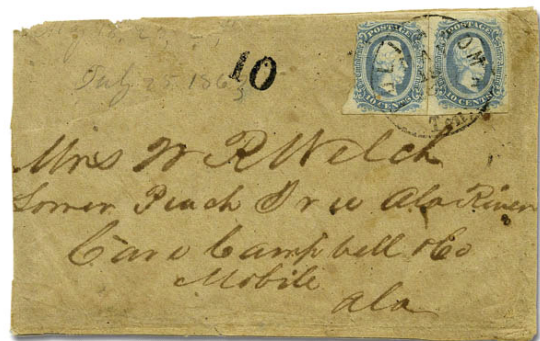 July 25 1863
10
POSTAGE POSTAGE
TEN CENTS TEN CENTS
Mrs W R Welch
Lower Peach Tree Ala River
Care Campbell & Co
Mobile
Ala